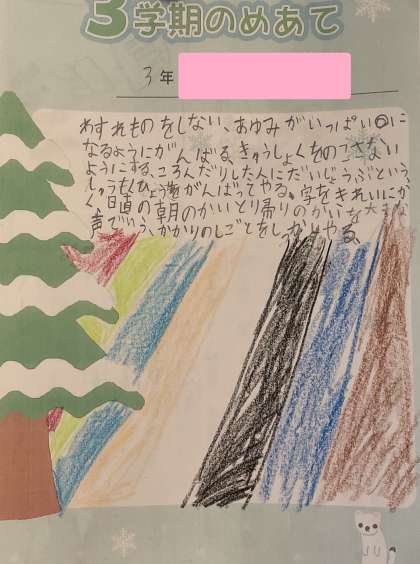 3学期のめあて
3年
わすれものをしない、あゆみがいっぱい◎に
なるようにがんばる、きゅうしょくをのこさない
ようにする、ころんだりした人にだいじょうぶという、
しゅくだいひょうをがんばってやる、字をきれいにか
く、日直の朝のかいとり帰りのかいを大きな
声でいう、かかりのしごとをしっかりやる、